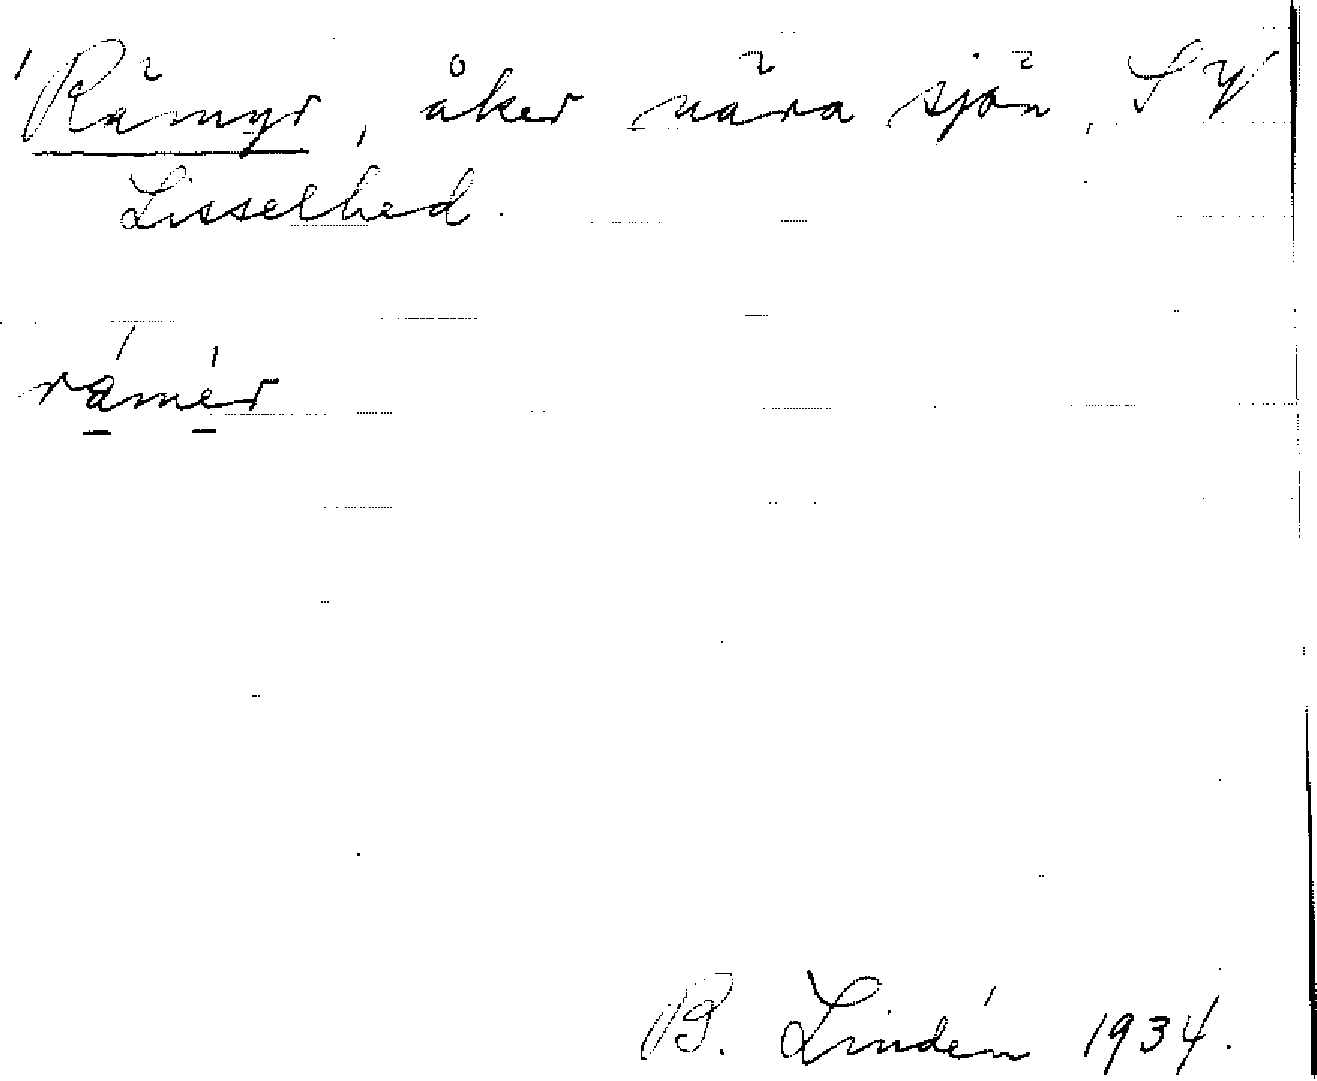 'Råmyr, åker nära sjön, SV
Lisselhed.
råmér
B. Lindén 1934.